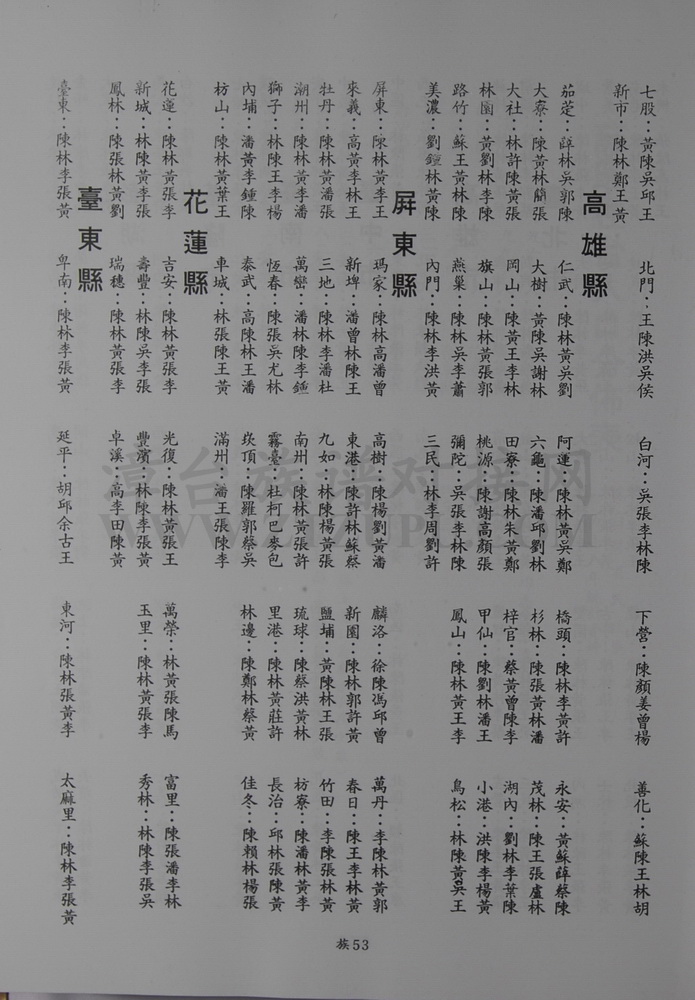 七股：黃陳吳邱王　北門：王陳洪吳侯　白河：吳張李林陳　下營：陳顏姜曾楊　善化：蘇陳王林胡
新市：陳林鄭王黃
高雄縣
茄萣：薛林吳郭陳　仁武：陳林黃吳劉　阿蓮：陳林黃吳鄭　橋頭：陳林李黃許　永安：黃蘇薛蔡陳
大寮：陳黃林簡張　大樹：黃陳吳謝林　六龜：陳潘邱劉林　杉林：陳張黃林潘　茂林：陳王張盧林
大社：林許陳黃張　岡山：陳黃王李林　田寮：陳林朱黃鄭　梓官：蔡黃曾陳李　湖內：劉林李葉陳
林園：黃劉林李陳　旗山：陳林黃張郭　桃源：陳謝高顏張　甲仙：陳劉林潘王　小港：洪陳李楊黃
路竹：蘇王黃林陳　燕巢：陳林吳李蕭　彌陀：吳張李林陳　鳳山：陳林黃王李　鳥松：林陳黃吳王
美濃：劉鍾林黃陳　內門：陳林李洪黃　三民：林李周劉許
屏東縣
屏東：陳林黃李王　瑪家：陳林高潘曾　高樹：陳楊劉黃潘　麟洛：徐陳馮邱曾　萬丹：李陳林黃郭
來義：高黃李林王　新埤：潘曾林陳王　東港：陳許林蘇蔡　新園：陳林郭許黃　春日：陳王李林黃
牡丹：林陳黃潘張　三地：陳林李潘杜　九如：林陳楊黃張　鹽埔：黃陳林王張　竹田：李陳張林黃
潮州：陳林黃李潘　萬巒：潘林陳李鍾　南州：陳林黃張許　琉球：陳蔡洪黃林　枋寮：陳潘林黃李
獅子：林陳王李楊　恆春：陳張吳尤林　霧臺：杜柯巴麥包　里港：陳林黃莊許　長治：邱林張陳黃
內埔：潘黃李鍾陳　泰武：高陳林王潘　崁頂：陳羅郭蔡吳　林邊：陳鄭林蔡黃　佳冬：陳賴林楊張
枋山：陳林黃葉王　車城：林張陳王黃　滿州：潘王張陳李
花蓮縣
花蓮：陳林黃張李　吉安：陳林黃張李　光復：陳林黃張王　萬榮：林黃張陳馬　富里：陳張潘李林
新城：林陳黃李張　壽豐：林陳吳李張　豐濱：林陳李張黃　玉里：陳林黃張李　秀林：林陳李張吳
鳳林：陳張林黃劉　瑞穗：陳林黃張李　卓溪：高李田陳黃
臺東縣
臺東：陳林李張黃　卑南：陳林李張黃　延平：胡邱余古王　東河：陳林張黃李　太麻里：陳林李張黃
族53